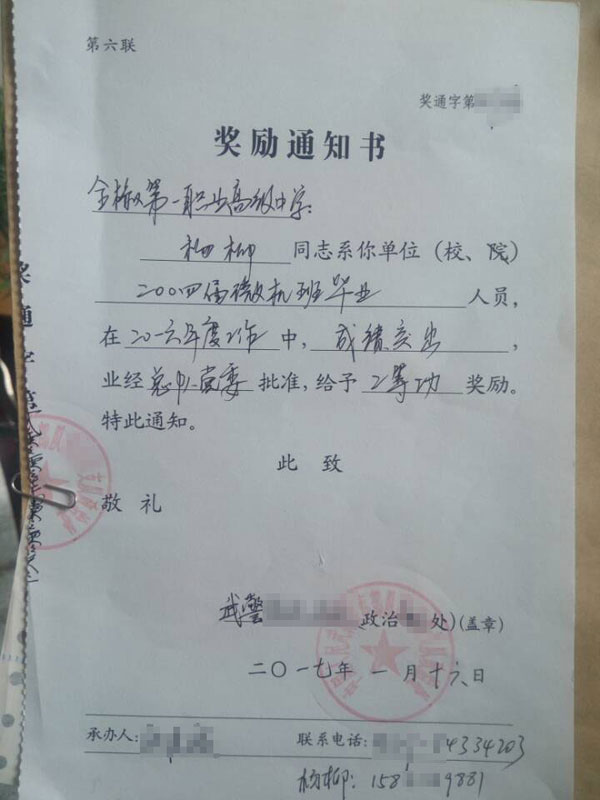 第六联
奖通字第
奖励通知书
第一职业高级中学:
柳 同志系你单位（校、院）
二00四届微机班毕业 人员，
在二0一六年度工作中，成绩突出，
业经总队党委批准，给予二等功奖励。
特此通知。
此 致
敬 礼
武警 (政治 处)(盖章)
二〇一七年 一 月 十六 日
承办人: 联系电话: 4334203
柳: 158 9881
奖通字第